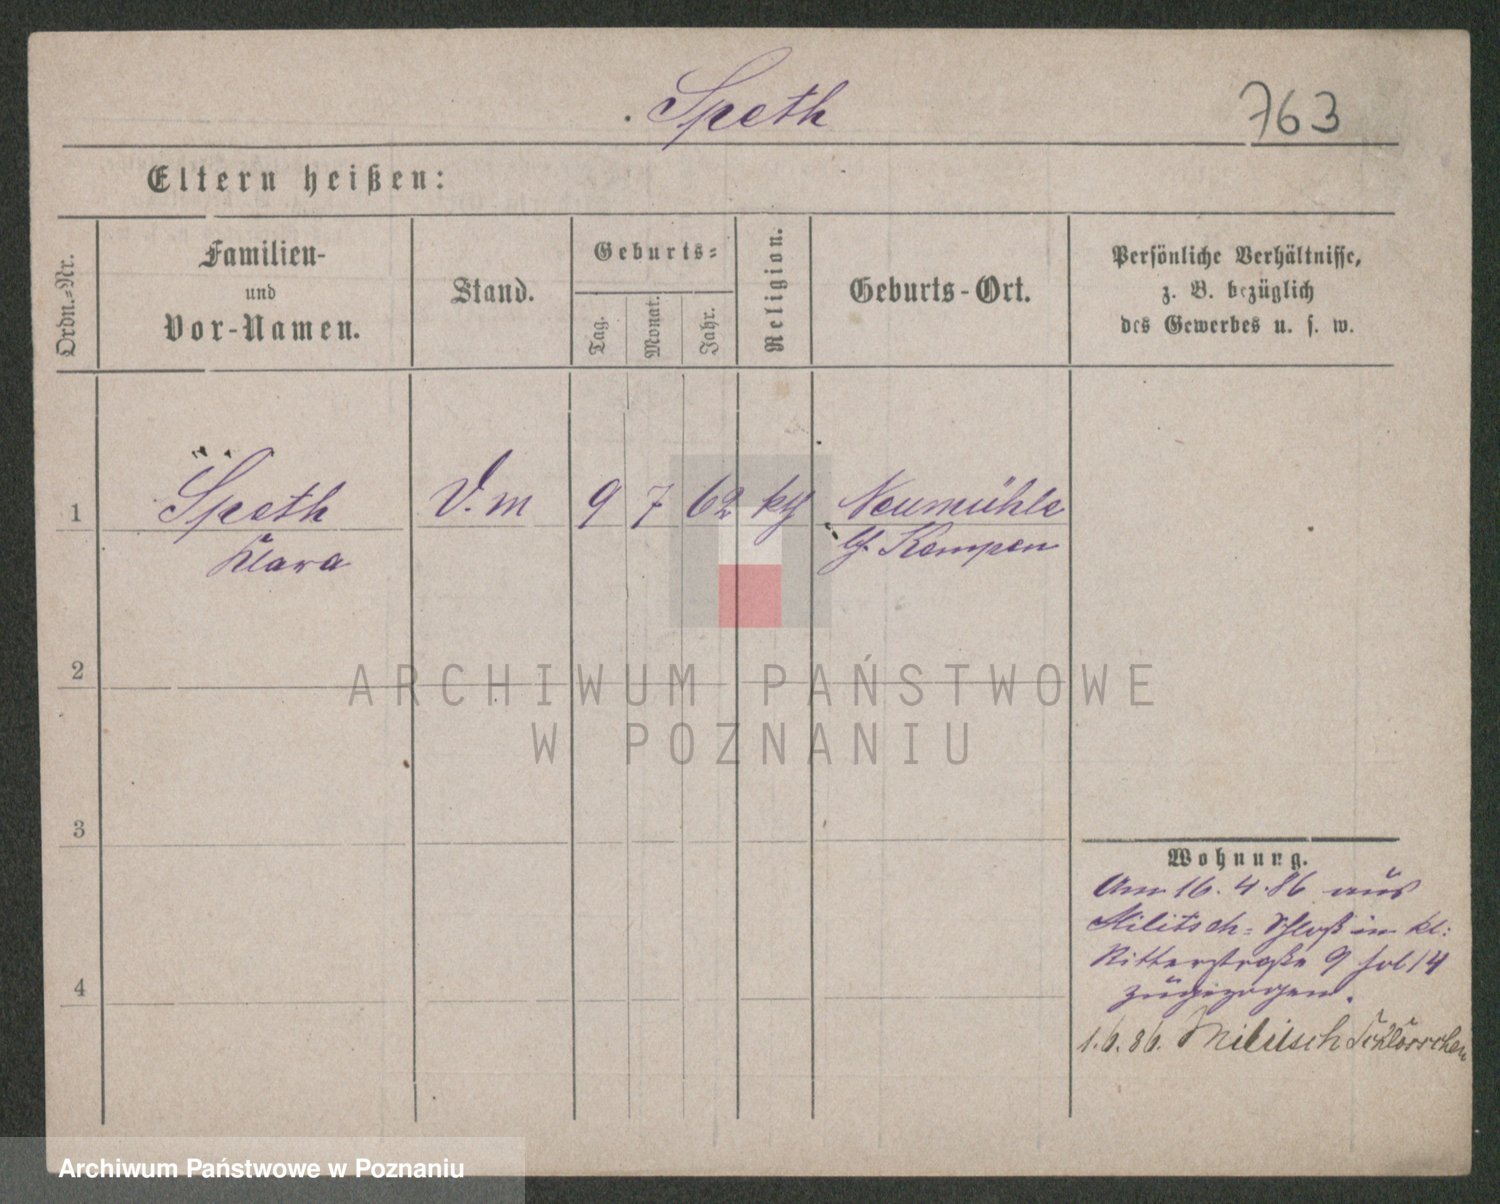 Speth
763
Eltern heißen:
Ordn.-Nr.
Familien-
und
Vor-Namen.
Stand.
Geburts-
Tag.
Monat.
Jahr.
Religion.
Geburts-Ort.
Persönliche Verhältnisse,
z. B. bezüglich
des Gewerbes u. s. w.
1
Speth
Klara
D. m
9
7
62
kth
Neumühle
Kempen
2
3
4
Wohnung.
Am 16. 4. 86 aus
Militsch-Schloß in kl:
Ritterstraße 9 14
zugezogen.
1.6.86. Militsch
ARCHIWUM PAŃSTWOWE
W POZNANIU
Archiwum Państwowe w Poznaniu